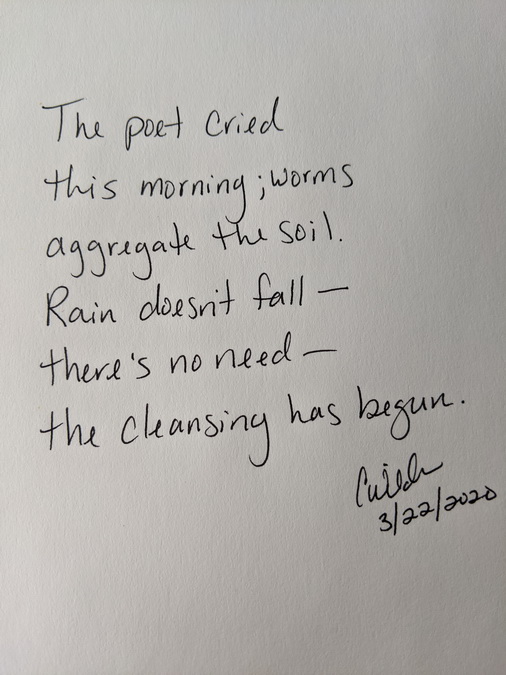 The poet cried
this morning; worms
aggregate the soil.
Rain doesn't fall —
there's no need —
the cleansing has begun.
3/22/2020